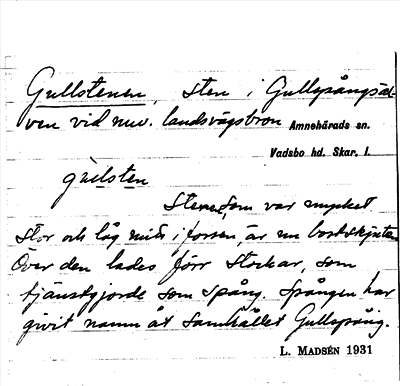 Gullstenen, sten i Gullspångsäl-
ven vid nuv. landsvägsbron Amnehärads sn.
Vadsbo hd. Skar. l.
gúlstèn
Stenen, som var mycket
stor och låg midt i forsen, är nu bortskjuten.
Över den lades förr stockar, som
tjänstgjorde som spång. Spången har
givit namn åt samhället Gullspång.
L. MADSÉN 1931